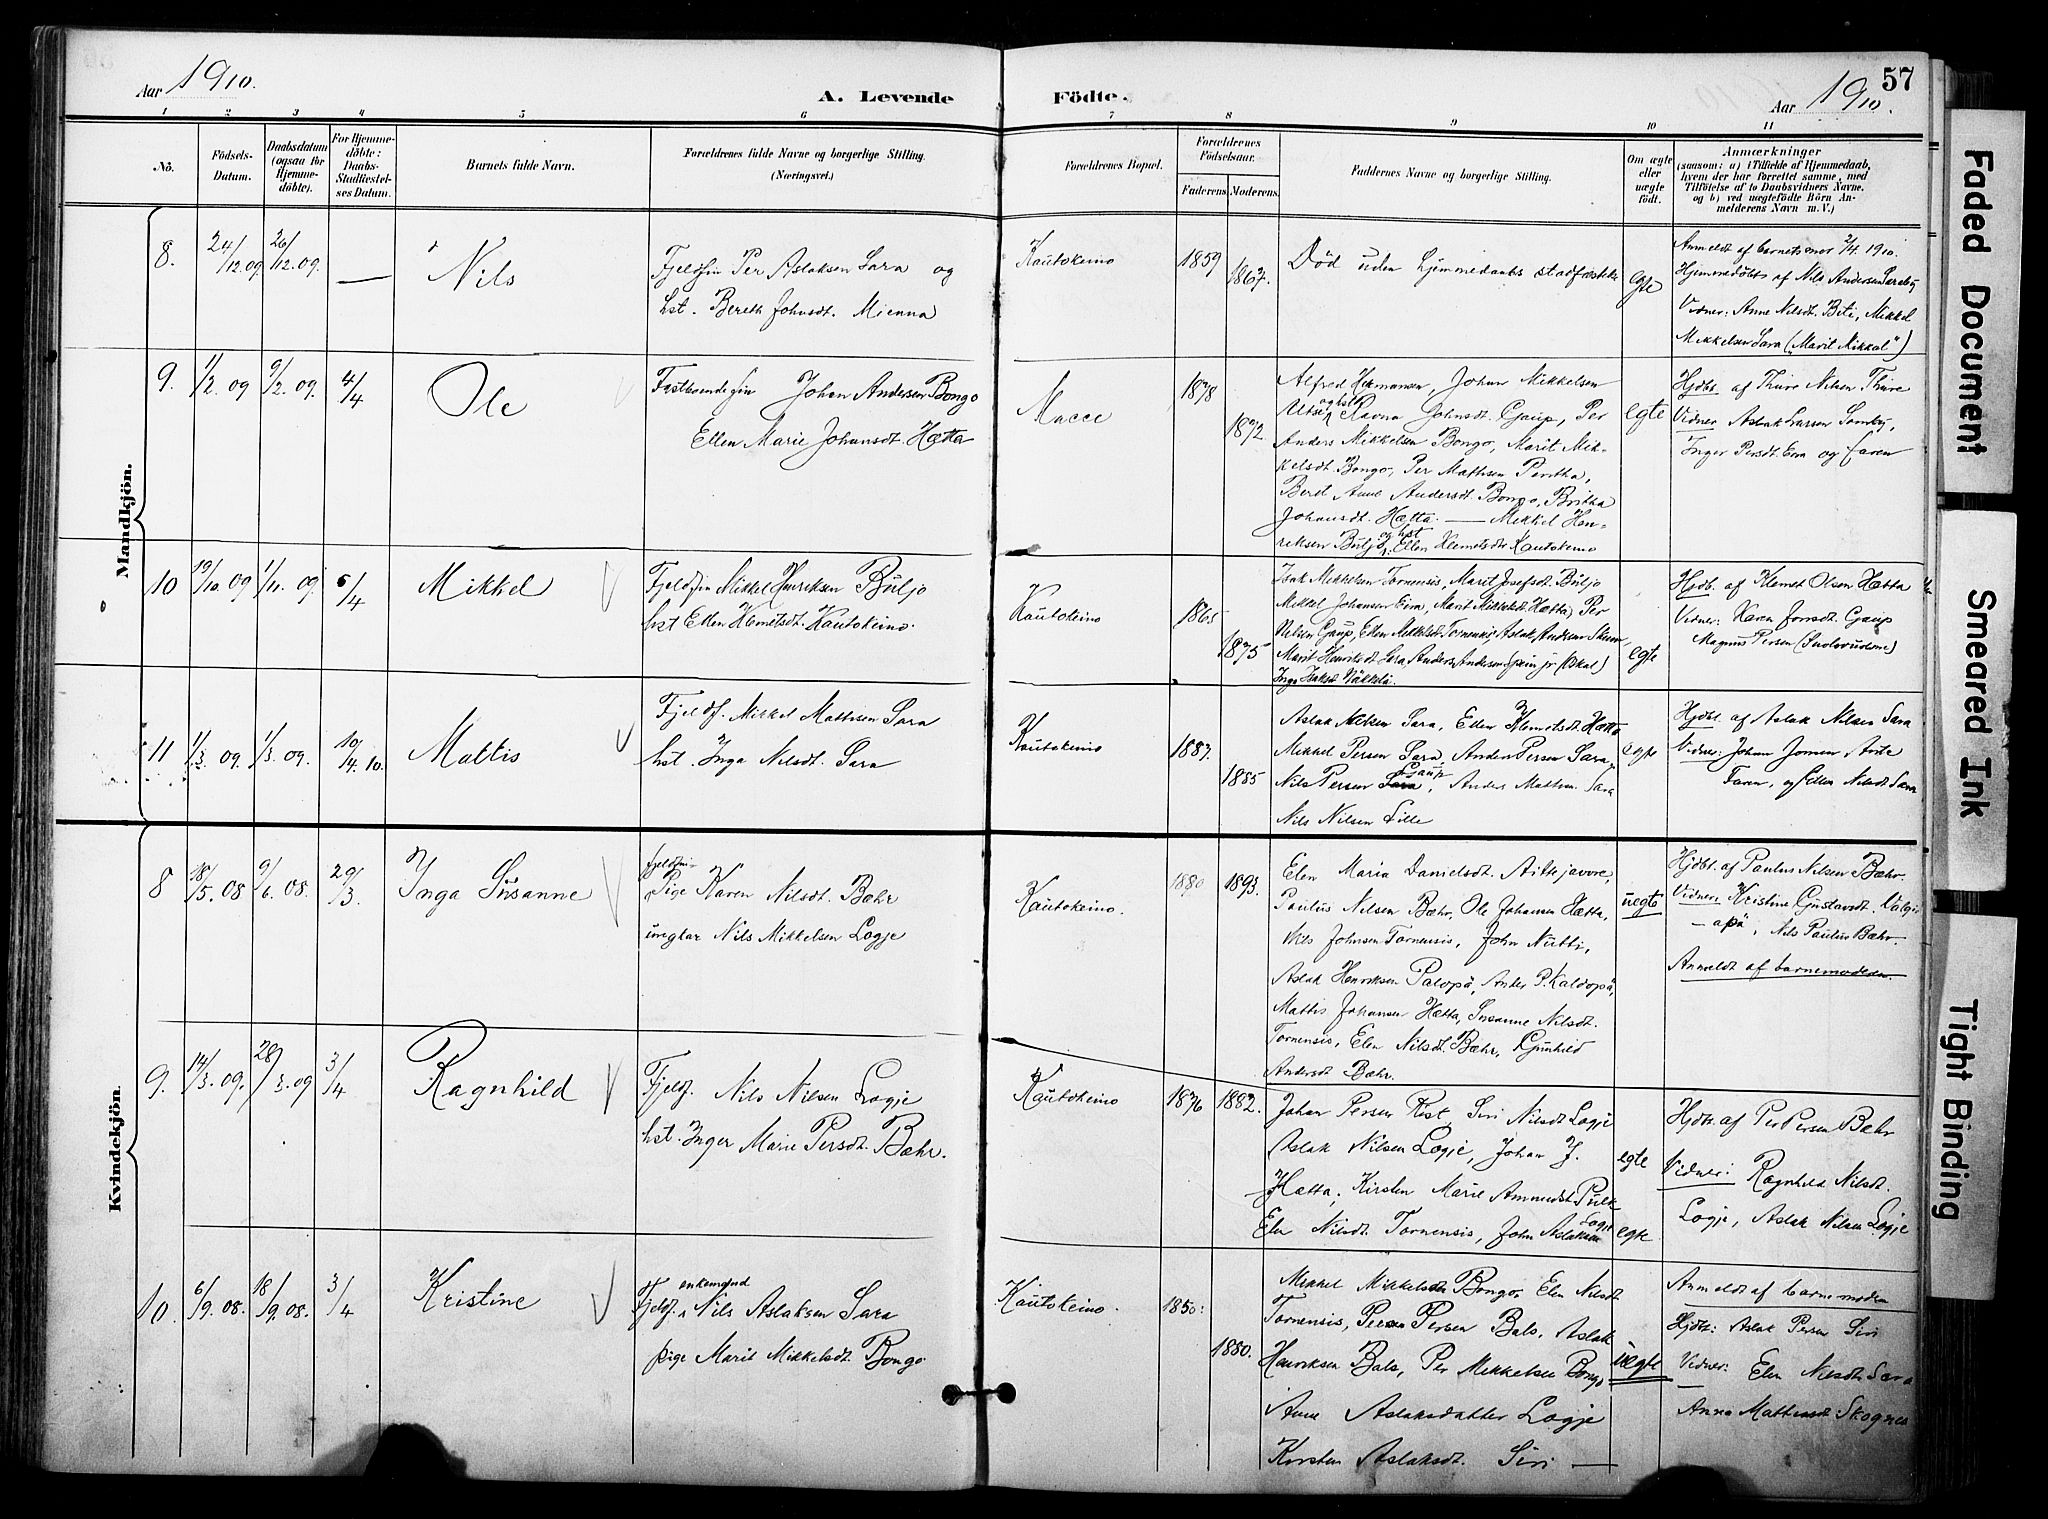 57
Aar 1910.
A. Levende Födte.
Aar 1910.
1 2 3 4 5 6 7 8 9 10 11
No.
Födsels-
Datum.
Daabsdatum
(ogsaa for
Hjemme-
döbte).
For Hjemme-
döbte:
Daabs-
Stadfæstel-
ses Datum.
Barnets fulde Navn.
Forældrenes fulde Navne og borgerlige Stilling.
(Næringsvei.)
Forældrenes Bopæl.
Forældrenes
Födselsaar.
Faderens Moderens
Faddernes Navne og borgerlige Stilling.
Om ægte
eller
uægte
födt.
Anmærkninger
(saasom: a) i Tilfælde af Hjemmedaab,
hvem der har forrettet samme, med
Tilföielse af to Daabsvidners Navne,
og b) ved uægtefödte Börn An-
melderens Navn m. V.)
Mandkjön.
8.
24/12.09
26/12.09.
—
Nils
Fjeldfin Per Aslaksen Sara og
hst. Bereth Johnsdt. Mienna
Kautokeino
1859
1867.
Död uden hjemmedaabs stadfæstelse
egte
Anmeldt af barnets mor 2/4 1910.
Hjemmedöbt af Nils Andersen Saraby
Vidner: Anne Nilsdt. Beti, Mikkel
Mikkelsen Sara ("Marit Mikkal")
9.
1/2 09
9/2 09.
4/4
Ole
Fastboende fin Johan Andersen Bongo
Ellen Marie Johansdt. Hætta
Macce
1878
1872
Alfred Hermansen, Johan Mikkelsen
Utsi og hst Ravna Johnsdt. Gaup, Per
Anders Mikkelsen Bongo, Marit Mik-
kelsdt. Bongo, Per Mathsen Pentha,
Beret Anne Andersdt. Bongo, Britha
Johansdt. Hætta. — Mikkel Hen-
riksen Buljo og hst Ellen Klemetsdtr Kautokeino
egte
Hjdbt. af Thure Nilsen Thure
Vidner Aslak Larsen Somby,
Inger Persdt. Eira og faren
10
19/10. 09
1/11. 09
5/4
Mikkel
Fjeldfin Mikkel Henriksen Buljo
hst Ellen Klemetsdt. Kautokeino.
Kautokeino
1865
1875
Isak Mikkelsen Tornensis, Marit Josefsdt. Buljo
Mikkel Johansen Eira, Marit Mikkelsdt Hætta, Per
Nilsen Gaup, Ellen Mikkelsdt Tornensis, Aslak Andersen
Marit Henriksdt Sara, Anders Andersen Spein jr (Skal)
Inga Isaksdt Näkkelä.
egte
Hjdb. af Klemet Olsen Hætta
Vidner: Karen Jonsdt. Gaup
Magnus Persen
11
1/3 09.
1/3 09.
10/4. 10.
Mattis
Fjeldf. Mikkel Mathsen Sara
hst. Inga Nilsdt. Sara
Kautokeino
1883.
1885
Aslak Nilsen Sara, Ellen Klemetsdt. Hætta
Mikkel Persen Sara, Anders Persen Sara,
Nils Persen Sara Gaup, Anders Mathsen Sara
Nils Nilsen Lille
egte
Hjdbt. af Aslak Nilsen Sara
Vidner: Johan Jonsen
Faren, og Ellen Nilsdt Sara
Kvindekjön.
8
18/5. 08
9/6. 08.
29/3.
Inga Susanne
fjeldfin
Pige Karen Nilsdt. Bæhr
ungkar Nils Mikkelsen Logje
Kautokeino.
1880 1893.
Elen Maria Danielsdt. Aittejavore,
Paulus Nilsen Bæhr, Ole Johansen Hætta,
Nils Johnsen Tornensis, John Nutti,
Aslak Henriksen Palopä, Anders P. Kaldopä,
Mattis Johansen Hætta, Susanne Nilsdt.
Tornensis, Elen Nilsdt. Bæhr, Gunhild
Andersdt Bæhr.
uegte
Hjdbt. af Paulus Nilsen Bæhr.
Vidner: Kristine Gustavsdt. Valgi-
-apä, Nils Paulus Bæhr.
Anmeldt af barnemoderen.
9.
14/3. 09.
28/3. 09
3/4
Ragnhild
Fjeldf. Nils Nilsen Logje
hst. Inger Marie Persdt. Bæhr.
Kautokeino
1876 1882.
Johan Persen Rist, Siri Nilsdt Logje
Aslak Nilsen Logje, Johan J.
Hætta, Kirsten Marie Ammundsdt Pulk
Elen Nilsdt. Tornensis, John Aslaksen Logje
egte
egte.
Hjdbt. af Per Persen Bæhr
Vidner: Ragnhild Nilsdt.
Logje, Aslak Nilsen Logje
10.
6/9. 08.
18/9. 08.
3/4
Kristine
Fjeldf. enkemand Nils Aslaksen Sara
pige Marit Mikkelsdt. Bongo
Kautokeino.
1850.
1880.
Mikkel Mikkelsen Bongo, Elen Nilsdt
Tornensis, Per Persen Bals, Aslak
Henriksen Bals, Per Mikkelsen Bongo
Anne Aslaksdatter Logje
Kirsten Aslaksdt. Siri —
uegte
Anmeldt af barnemoderen
Hjdbt: Aslak Persen Siri
Vidner: Elen Nilsdt. Sara
Anna Mathisdt. Skognes
Faded Document
Smeared Ink
Tight Binding